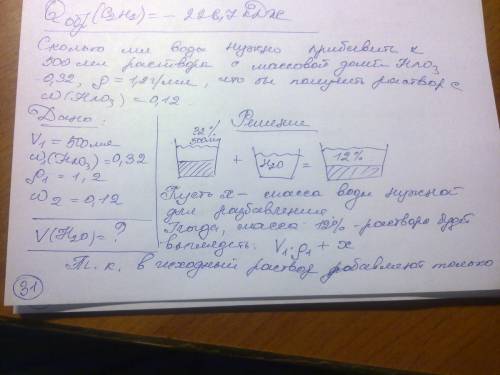 Qобр(C2H2) = - 226,7 кДж
Сколько мл воды нужно прибавить к
500 мл раствора с массовой долей HNO3
0,32, ρ = 1,2 г/мл, что бы получить раствор с
ω(HNO3) = 0,12
Дано:
V1 = 500мл
ω1(HNO3) = 0,32
ρ1 = 1,2
ω2 = 0,12
V(H2O) = ?
Решение
32%
500мл
+ H2O = 12%
Пусть x - масса воды нужной
для разбавления
Тогда, масса 12% - раствора будет
выглядеть: V1·ρ1 + x
Т.к. в исходный раствор добавляют только
31